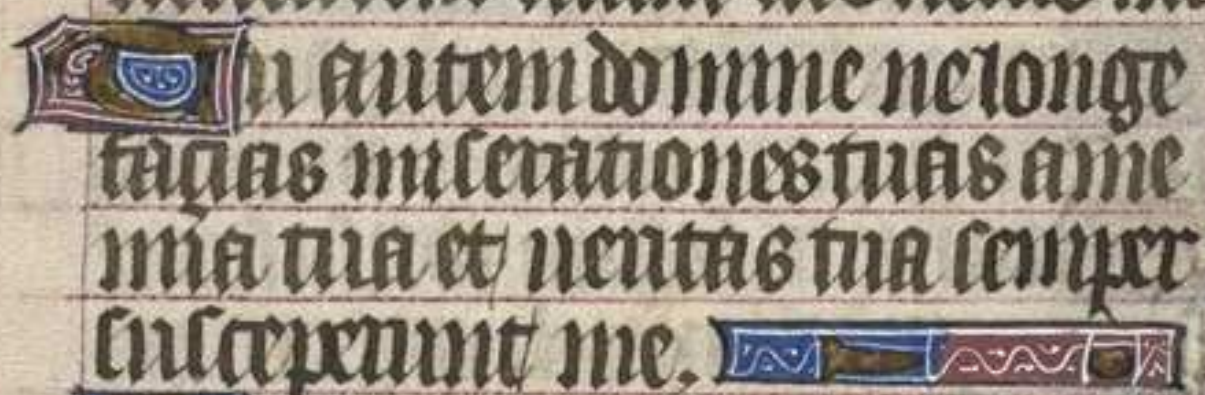 Tu autem domine ne longe
facias miserationes tuas a me
mia tua et ueritas tua semper
susceperunt me.